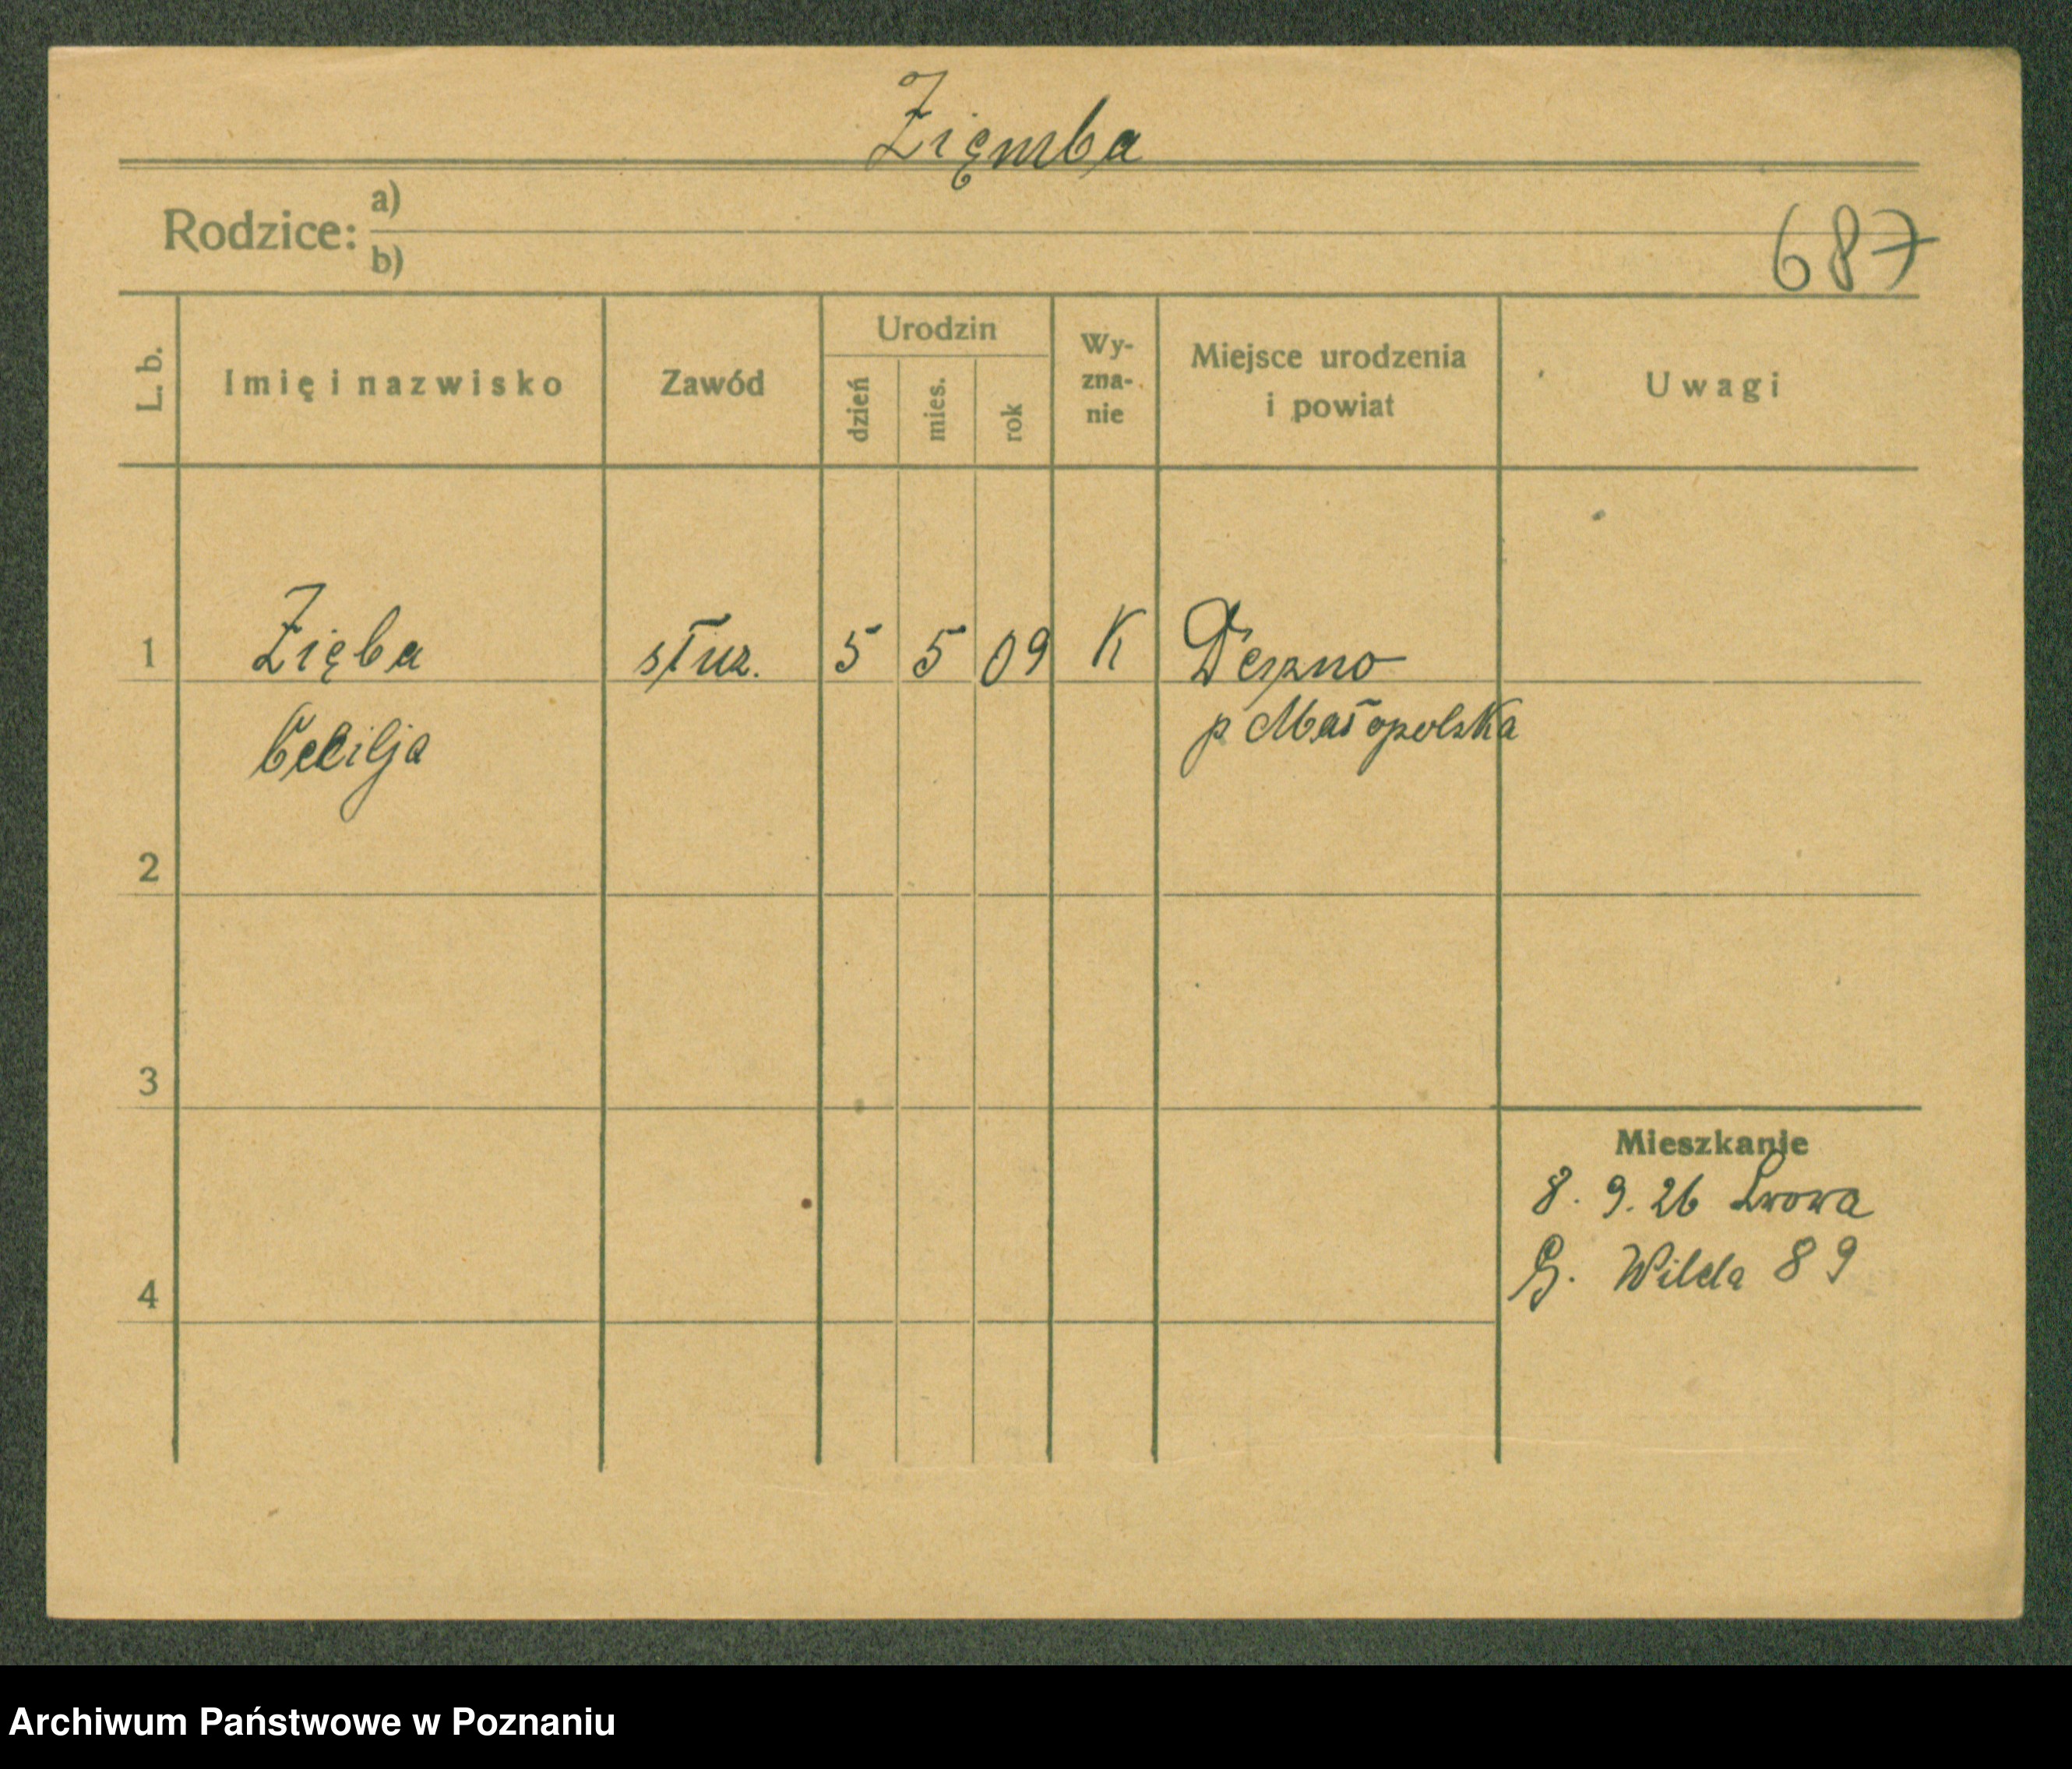 Zięmba
Rodzice: a)
b)
687
L. b.
Imię i nazwisko
Zawód
Urodzin
dzień
mies.
rok
Wy-
zna-
nie
Miejsce urodzenia
i powiat
Uwagi
1 Zięba słuz. 5 5 09 K
Cecilja p Małopolska
2
3
4
Mieszkanie
8. 9. 26 Lwowa
G. Wilda 89
Archiwum Państwowe w Poznaniu